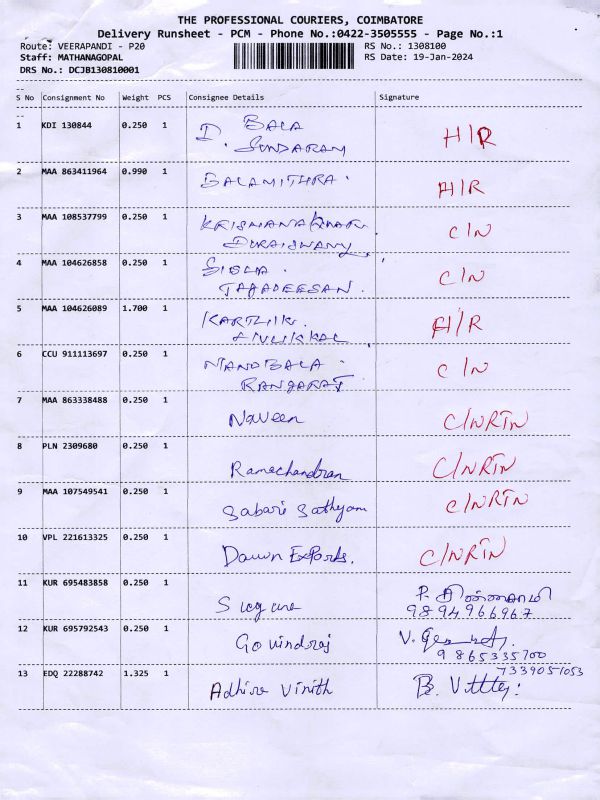 THE PROFESSIONAL COURIERS, COIMBATORE
Delivery Runsheet - PCM - Phone No.:0422-3505555 - Page No.:1
Route: VEERAPANDI - P20 RS No.: 1308100
Staff: MATHANAGOPAL RS Date: 19-Jan-2024
DRS No.: DCJB130810001
S No Consignment No Weight PCS Consignee Details Signature
1 KDI 130844 0.250 1 D. BALA H/R
SUNDARAM
2 MAA 863411964 0.990 1 BALAMITHRA. H/R
3 MAA 108537799 0.250 1 C/N
DURAISWAMY
4 MAA 104626858 0.250 1 C/N
JAGADEESAN.
5 MAA 104626089 1.700 1 KARTHIK. H/R
6 CCU 911113697 0.250 1 NANDBALA. C/N
RANGARAJ
7 MAA 863338488 0.250 1 Naveen C/NRTN
8 PLN 2309680 0.250 1 Ramachandran C/NRTN
9 MAA 107549541 0.250 1 Sabari Sathyam C/NRTN
10 VPL 221613325 0.250 1 Dawn Exports. C/NRTN
11 KUR 695483858 0.250 1 P.
9894966967
12 KUR 695792543 0.250 1 Govindraj V.
9865335700
7339051053
13 EDQ 22288742 1.325 1 Vinith